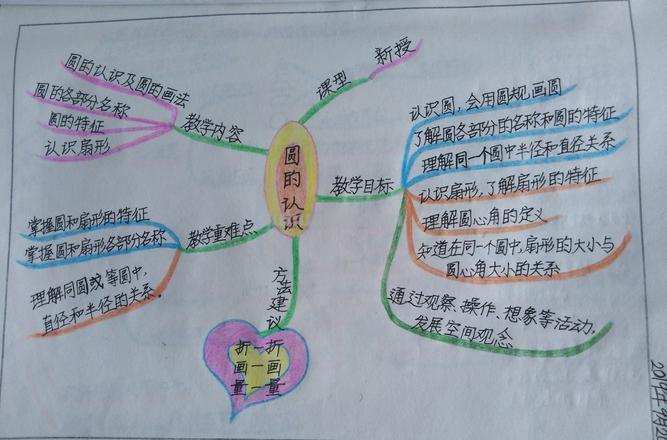 圆的认识
课型
新授
教学内容
圆的认识及圆的画法
圆的各部分名称
圆的特征
认识扇形
教学目标
认识圆，会用圆规画圆
了解圆各部分的名称和圆的特征
理解同一个圆中半径和直径关系
认识扇形，了解扇形的特征
理解圆心角的定义
知道在同一个圆中，扇形的大小与
圆心角大小的关系
通过观察、操作、想象等活动，
发展空间观念
教学重难点
掌握圆和扇形的特征
掌握圆和扇形各部分名称
理解同圆或等圆中，
直径和半径的关系。
方法建议
折一折
画一画
量一量